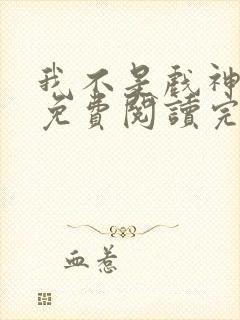 我不是戲神
免費閱讀完
血惹